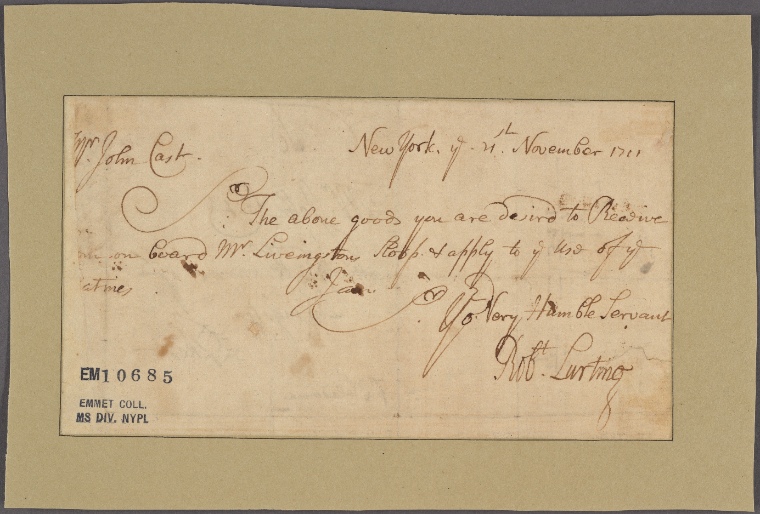 Mr. John Cast.
New York. ye 21st. November 1711
The above goods you are desird to Receive
on board Mr. Liveingston Sloop. & apply to ye use of ye
atines
I am
Yor. Very Humble Servant
Robt. Lurting
EM10685
EMMET COLL.
MS DIV. NYPL